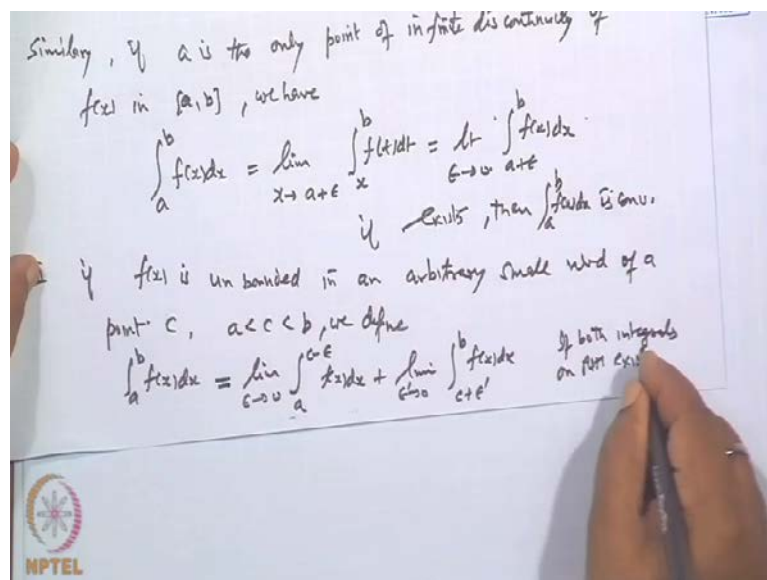 Similary, if a is the only point of infinite discontinuity of
f(x) in [a,b], we have
∫_a^b f(x)dx = lim_{x→a+ϵ} ∫_x^b f(t)dt = lt_{ϵ→0} ∫_{a+ϵ}^b f(x)dx.
if exists, then ∫_a^b f(x)dx is conv.
if f(x) is unbounded in an arbitrary small nbd of a
point c, a<c<b, we define
∫_a^b f(x)dx = lim_{ϵ→0} ∫_a^{c-ϵ} f(x)dx + lim_{ϵ'→0} ∫_{c+ϵ'}^b f(x)dx
If both integrals
on RHS exis
NPTEL